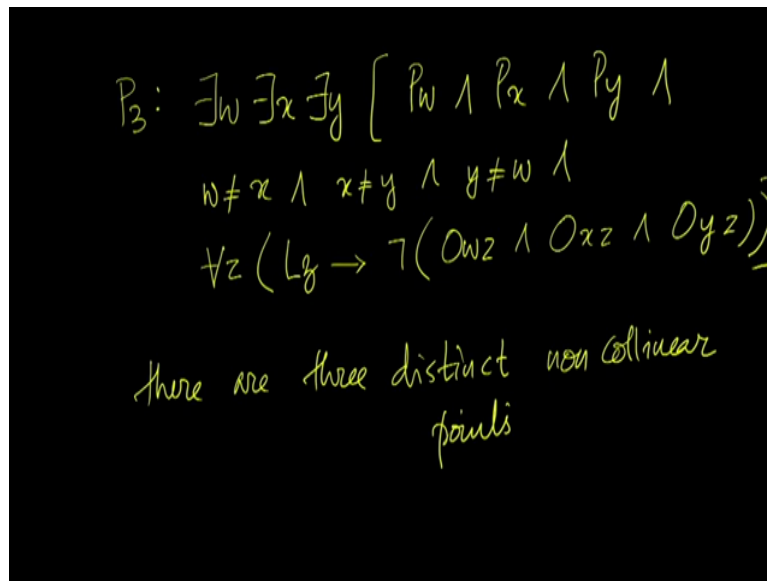 P₃: ∃w ∃x ∃y [ Pw ∧ Px ∧ Py ∧
w≠x ∧ x≠y ∧ y≠w ∧
∀z (Lz → ¬(Owz ∧ Oxz ∧ Oyz))]
there are three distinct non collinear
points